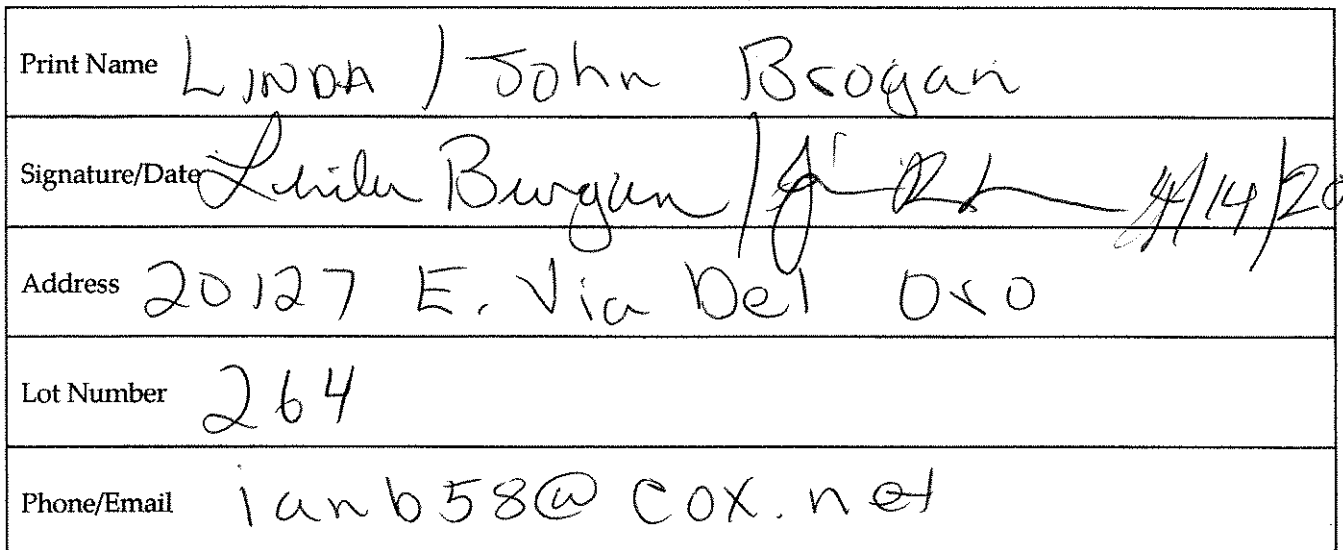 Print Name LINDA / John Brogan
Signature/Date Linda Brogan / 4/14/20
Address 20127 E. Via Del Oro
Lot Number 264
Phone/Email ianb58@cox.net